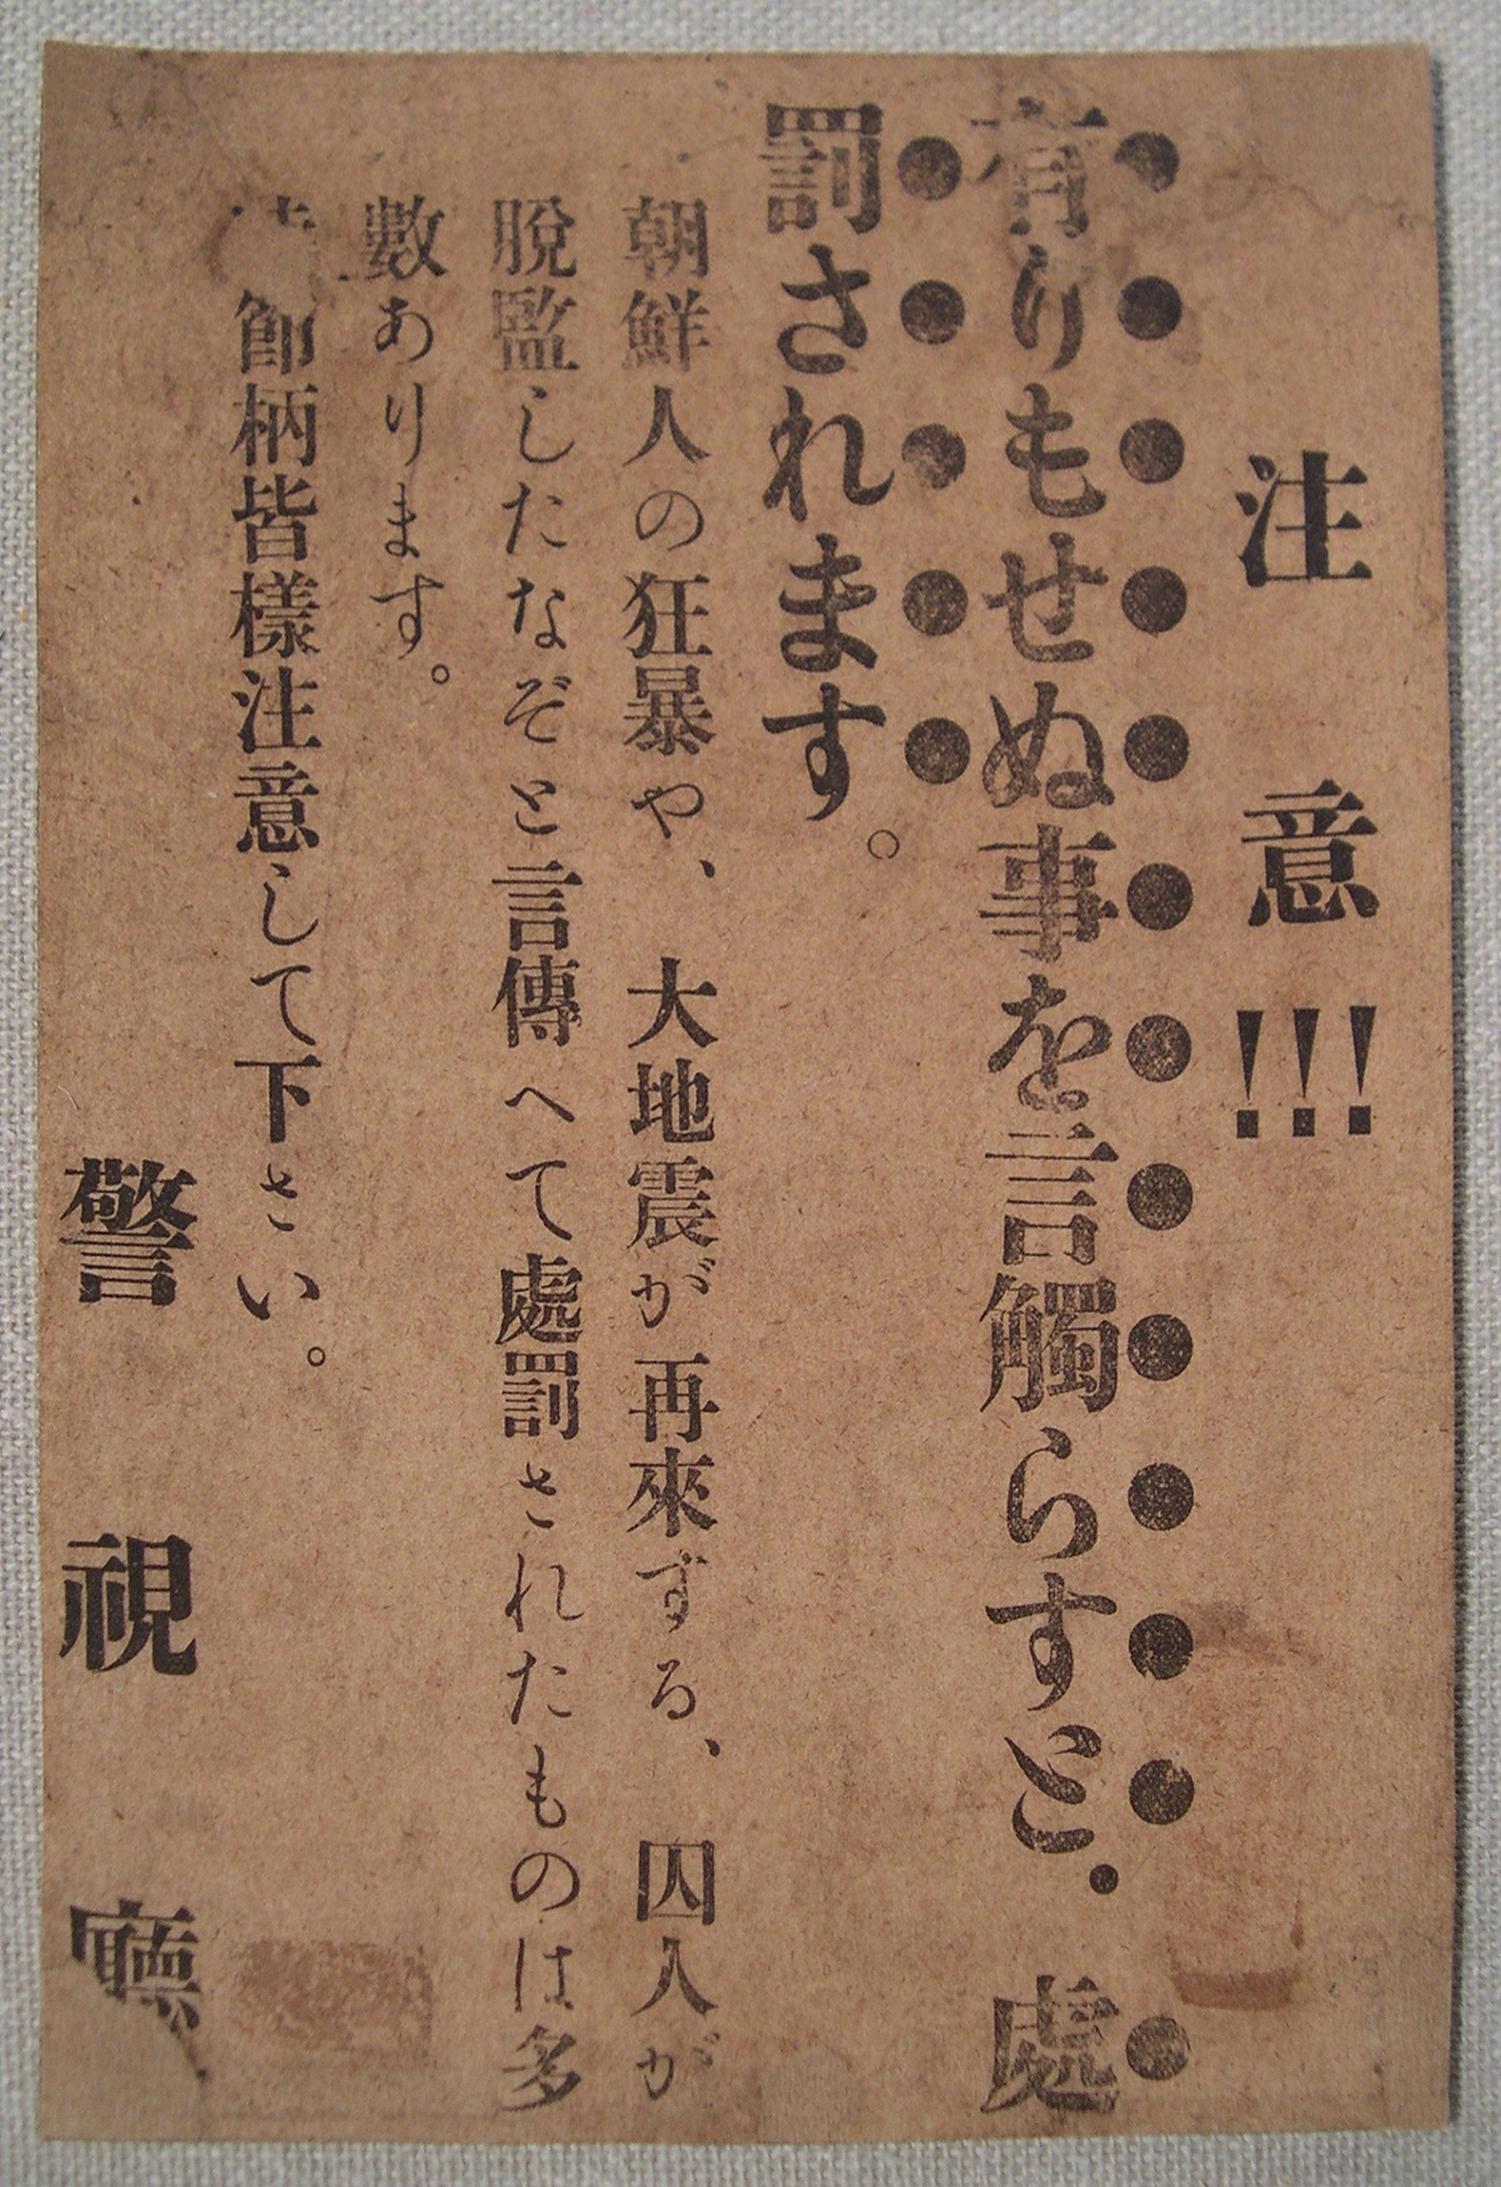 注意!!!
有りもせぬ事を言觸らすと、處
罰されます。
朝鮮人の狂暴や、大地震が再來する、囚人が
脱監したなぞと言傳へて處罰されたものは多
數あります。
節柄皆樣注意して下さい。
警視廳